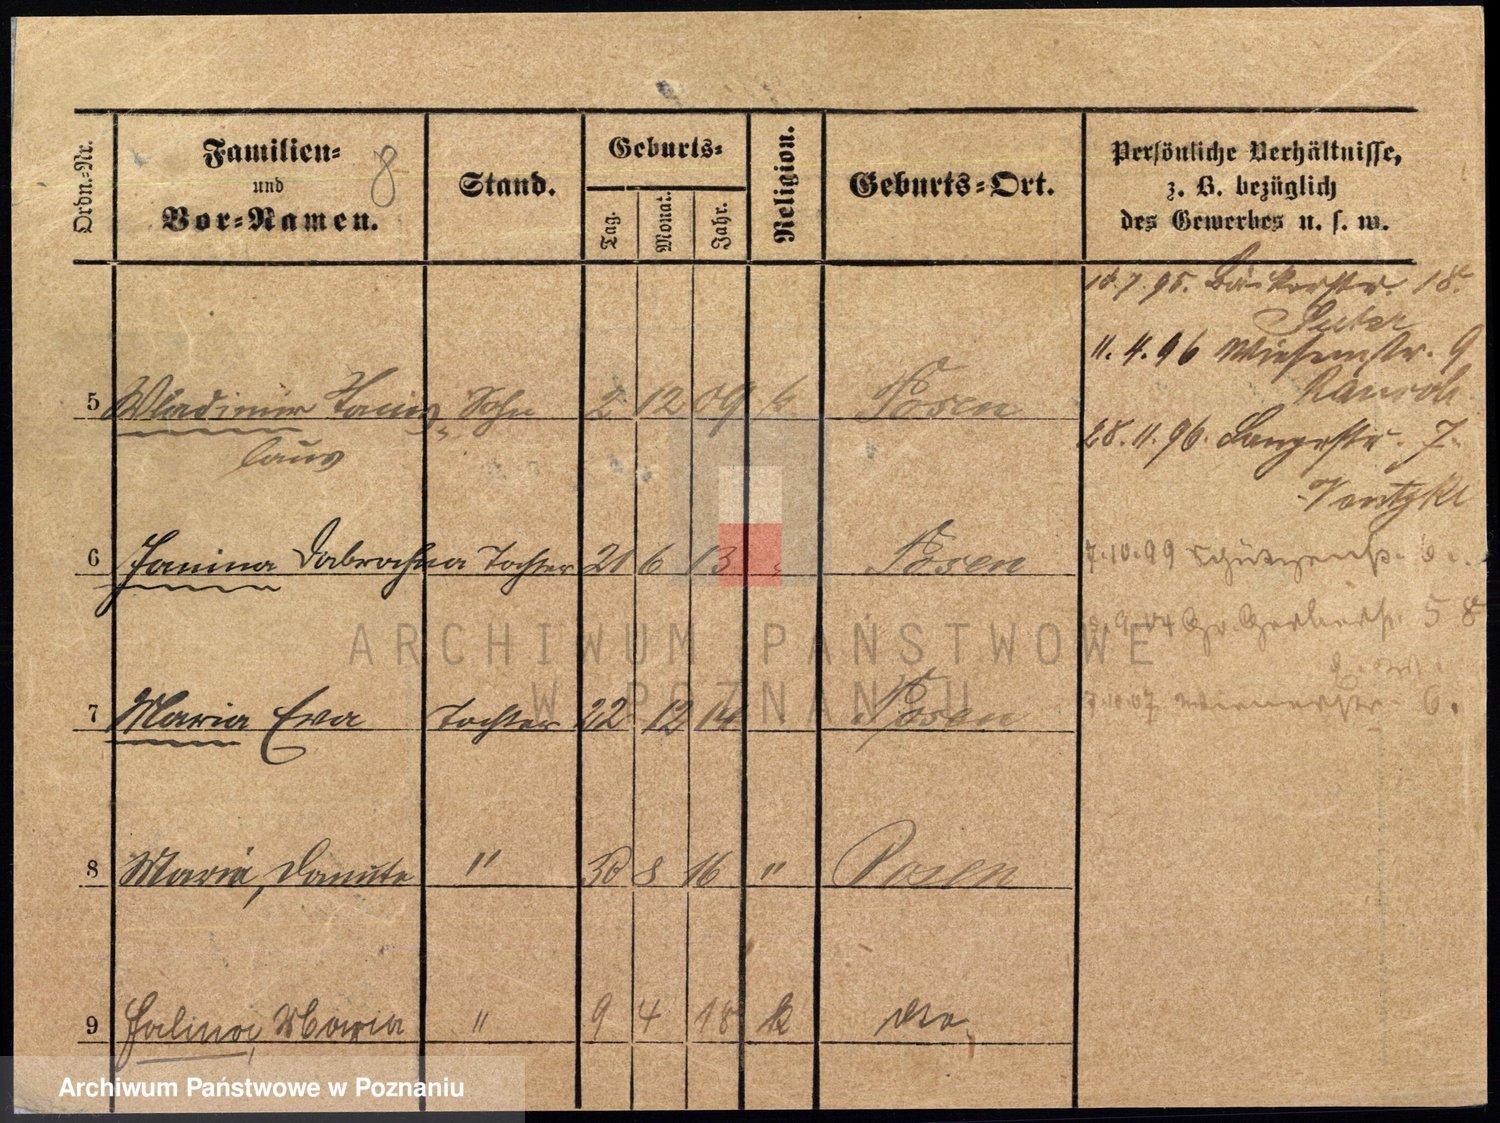 Ordn.-Nr.
Familien=
und
Vor=Namen.
8
Stand.
Geburts=
Tag.
Monat.
Jahr.
Religion.
Geburts=Ort.
Persönliche Verhältnisse,
z. B. bezüglich
des Gewerbes u. s. w.
18.7.95. Bäckerstr. 18.
11.4.96 Wiesenstr. 9
28.11.96. Langestr. 7
7.10.99 Schützenstr. 6
9.04 Gr. Gerberstr. 58
7.10.07 Wienerstr. 6.
5 Wladimir Stanis= Sohn 2 12 09 k Posen
laus
6 Janina Dabrochna Tochter 21 6 13 " Posen
7 Maria Eva Tochter 22 12 14 Posen
8 Maria, Danuta " 30 8 16 " Posen
9 Halina, Maria " 9 4 18 k dto
ARCHIWUM PAŃSTWOWE
W POZNANIU
Archiwum Państwowe w Poznaniu